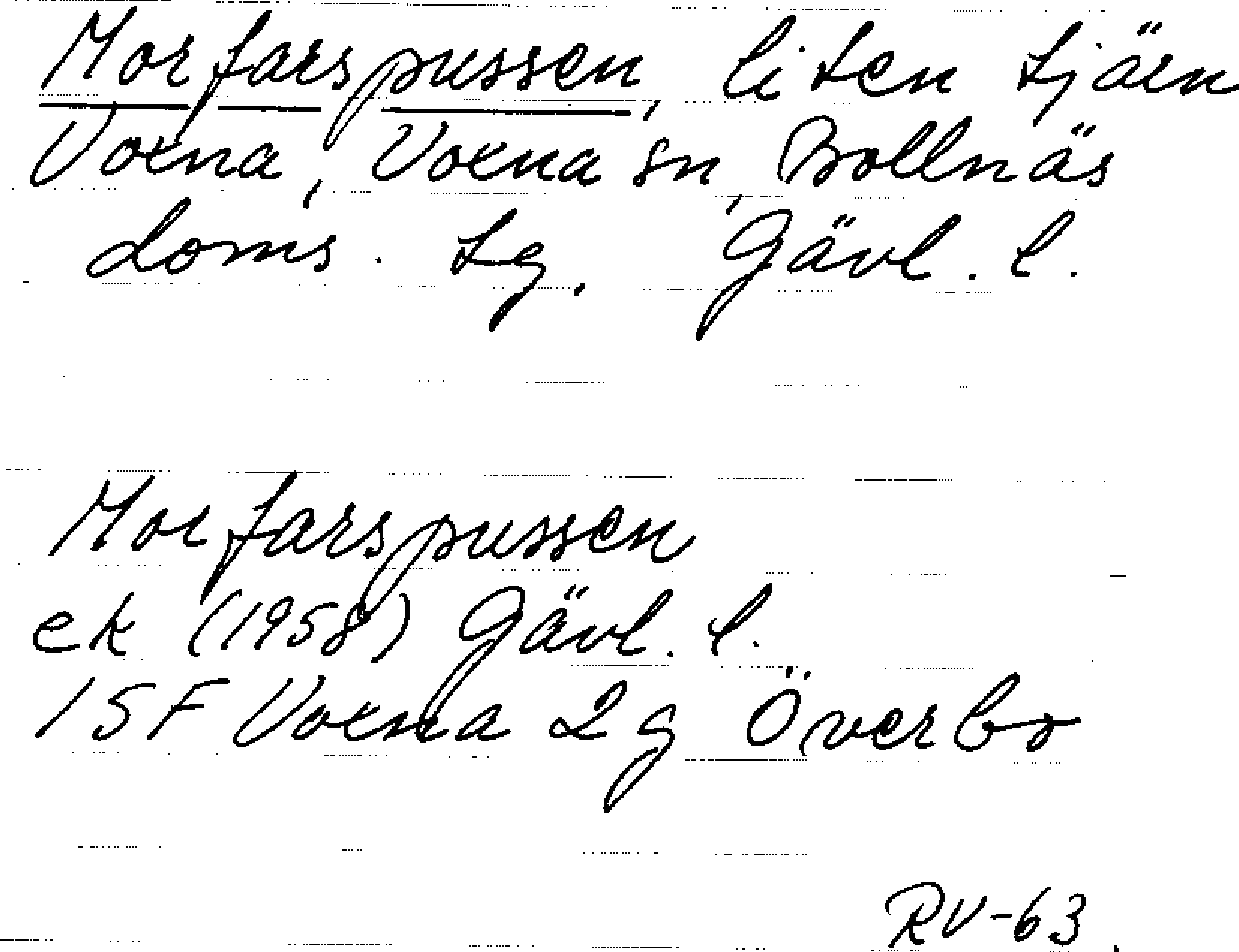 Morfarspussen, liten tjärn
Voxna, Voxna sn, Bollnäs
doms. tg, Gävl. l.
Morfarspussen
ek (1958) Gävl. l.
15F Voxna 2g Överbo
RV-63.